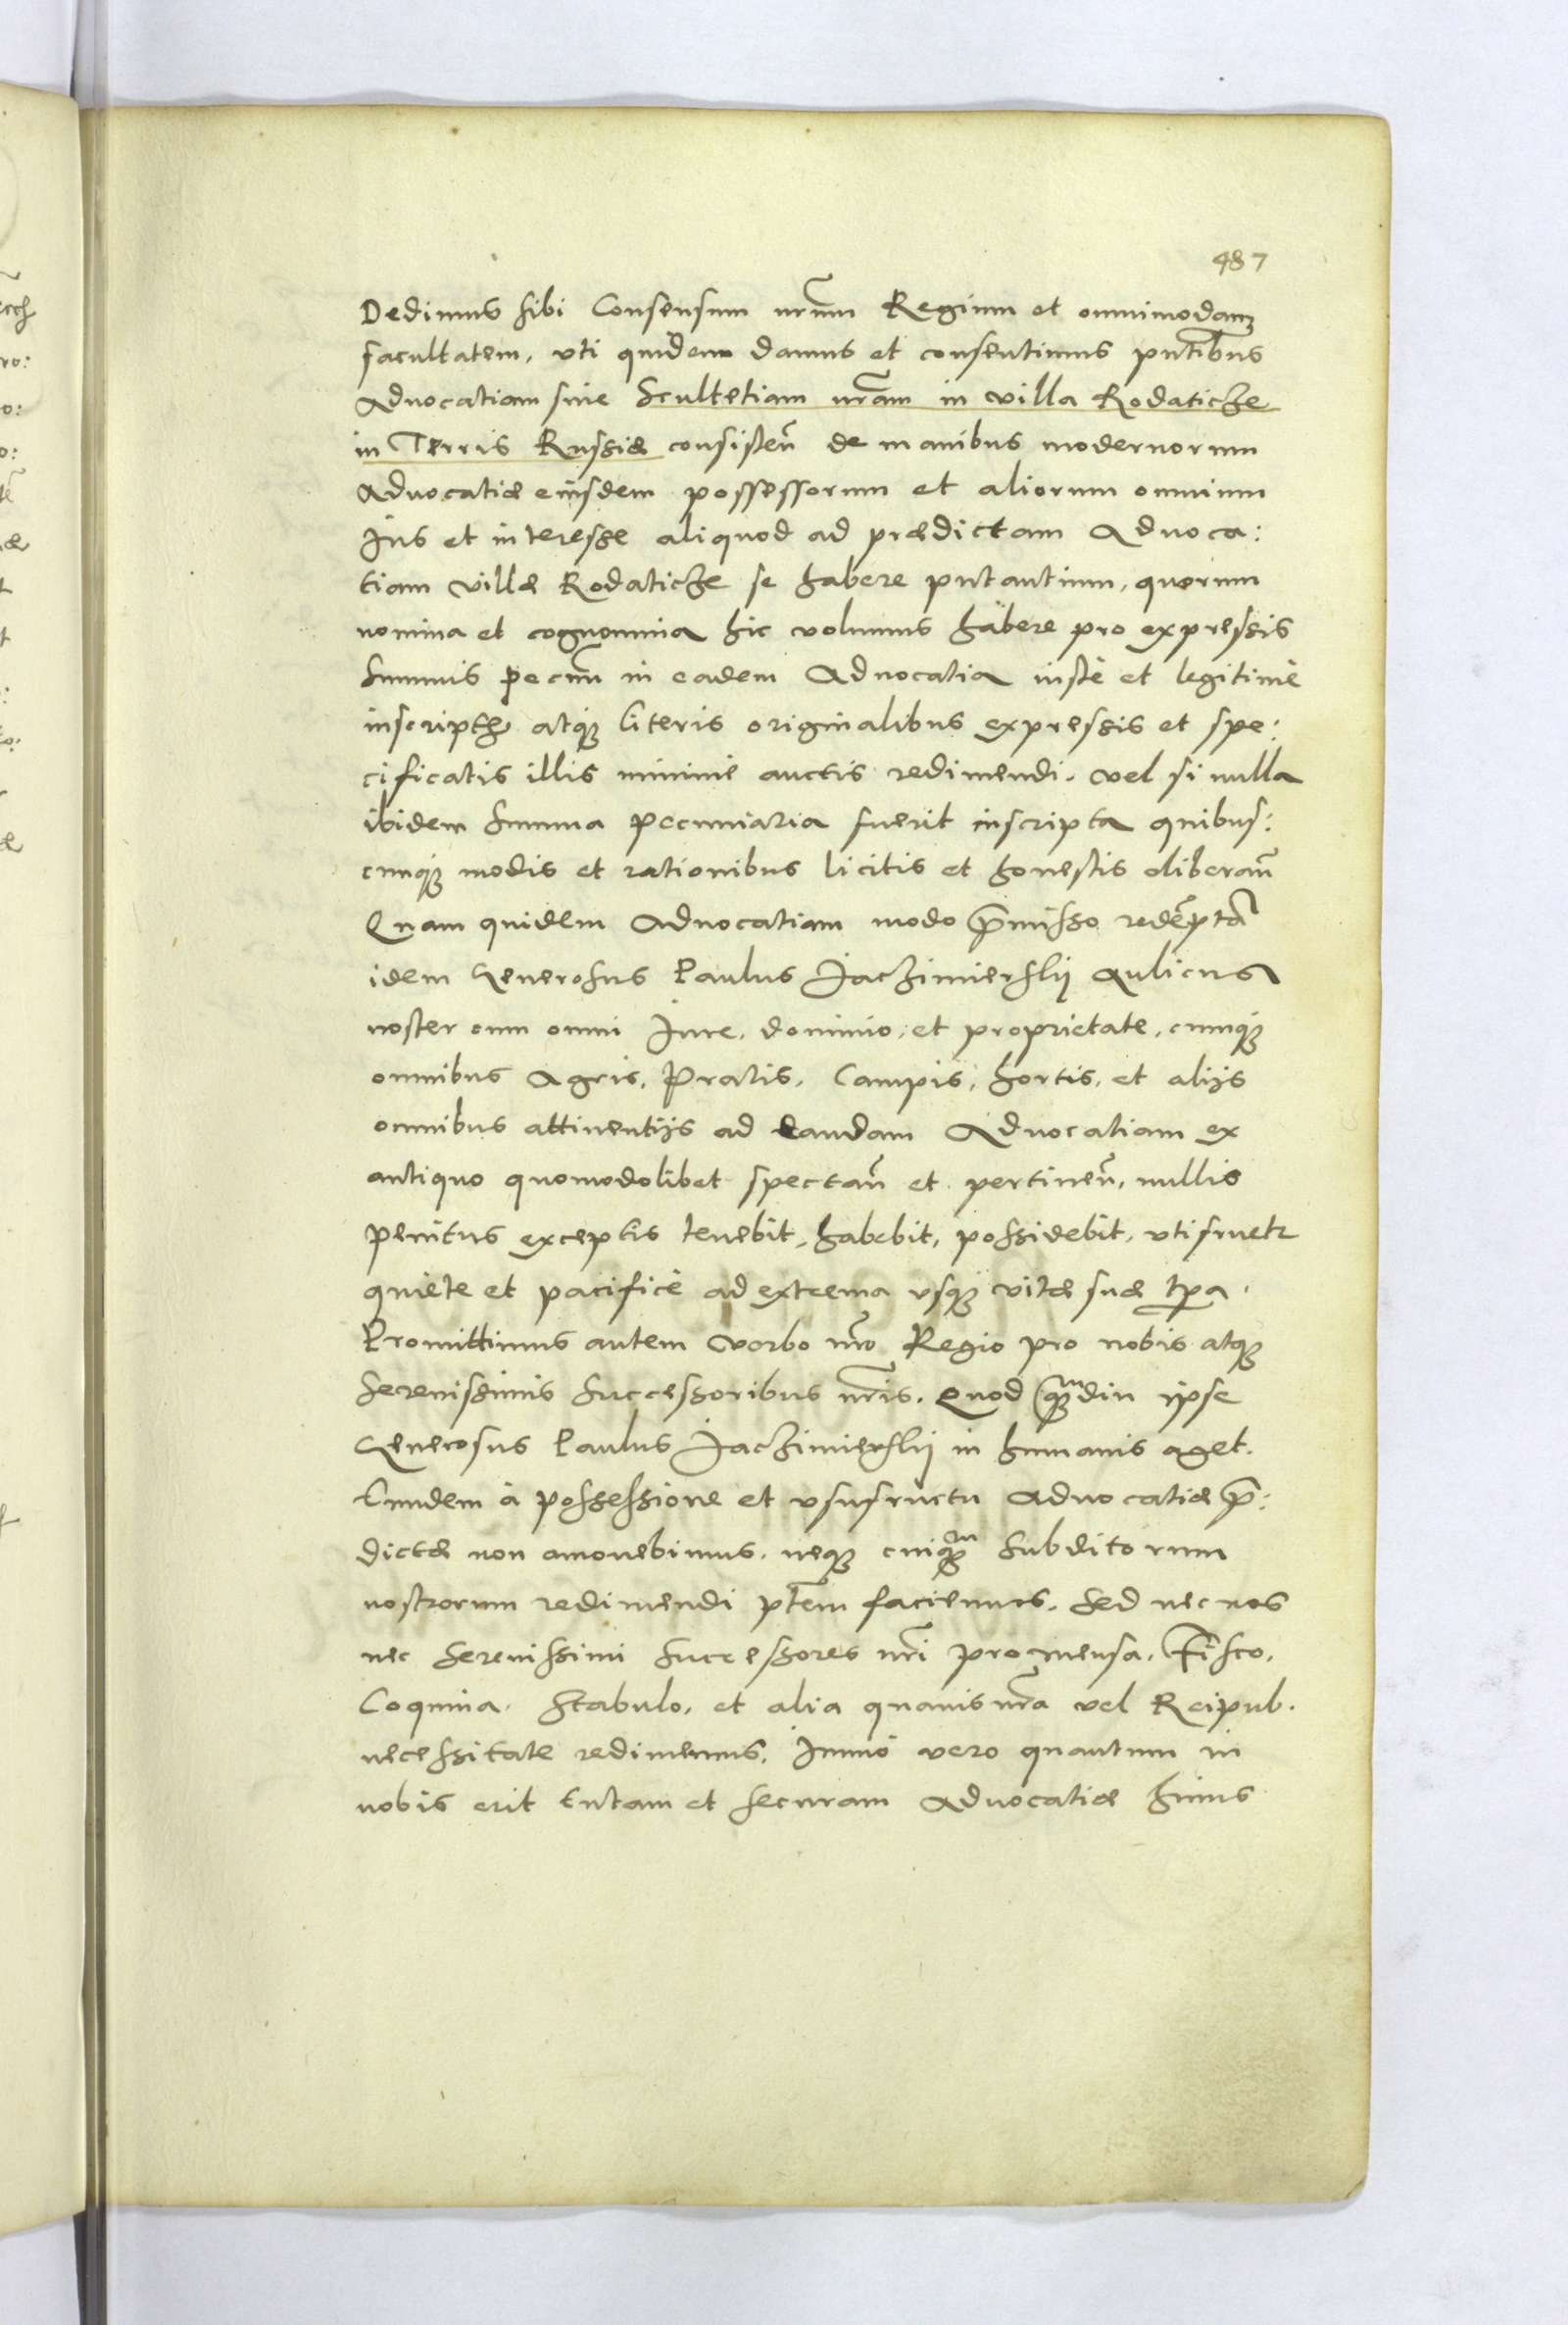 487
Dedimus sibi Consensum nr̃um Regium et omnimodam
facultatem, vti quidem damus et consentimus pñtibus
Aduocatiam siue Scultetiam nr̃am in villa Rodaticze
in Terris Russiæ consisteñ de manibus modernorum
Aduocatiæ eiusdem possessorum et aliorum omnium
Jus et interesse aliquod ad prædictam Aduoca:
tiam villæ Rodaticze se habere putantium, quorum
nomina et cognomina hic volumus habere pro expressis
summis pecuñ in eadem Aduocatia iustè et legitimè
inscriptꝭ atqꝫ literis originalibus expressis et spe:
cificatis illis minimè auctis redimendi. vel si nulla
ibidem summa pecuniaria fuerit inscripta quibus:
cunqꝫ modis et rationibus licitis et honestis eliberañ
Quam quidem Aduocatiam modo p̃misso redẽptã
idem Generosus Paulus Jaczimierslij Aulicus
noster cum omni Jure, dominio, et proprietate, cumqꝫ
omnibus Agris, Pratis, Campis, hortis, et alijs
omnibus attinentijs ad eandam Aduocatiam ex
antiquo quomodolibet spectañ et pertineñ, nullis
penitus exceptis tenebit, habebit, possidebit, vtifruetr
quiete et pacificè ad extrema vsqꝫ vitæ suæ tp̃a.
Promittimus autem verbo nr̃o Regio pro nobis atqꝫ
serenissimis successoribus nr̃is. Quod qꝫmdiu ipse
Generosus Paulus Jaczimierslij in humanis aget.
Eundem à possessione et vsufructu Aduocatiæ p̃:
dictæ non amouebimus, neqꝫ cuiqꝫm subditorum
nostrorum redimendi ptẽm faciemus. Sed nec nos
nec serenissimi successores nr̃i pro mensa, Fisco,
Coquina, Stabulo, et alia quauis nr̃a vel Reipub.
necessitate redimemus, Immò vero quantum in
nobis erit tutam et securam Aduocatiæ huius